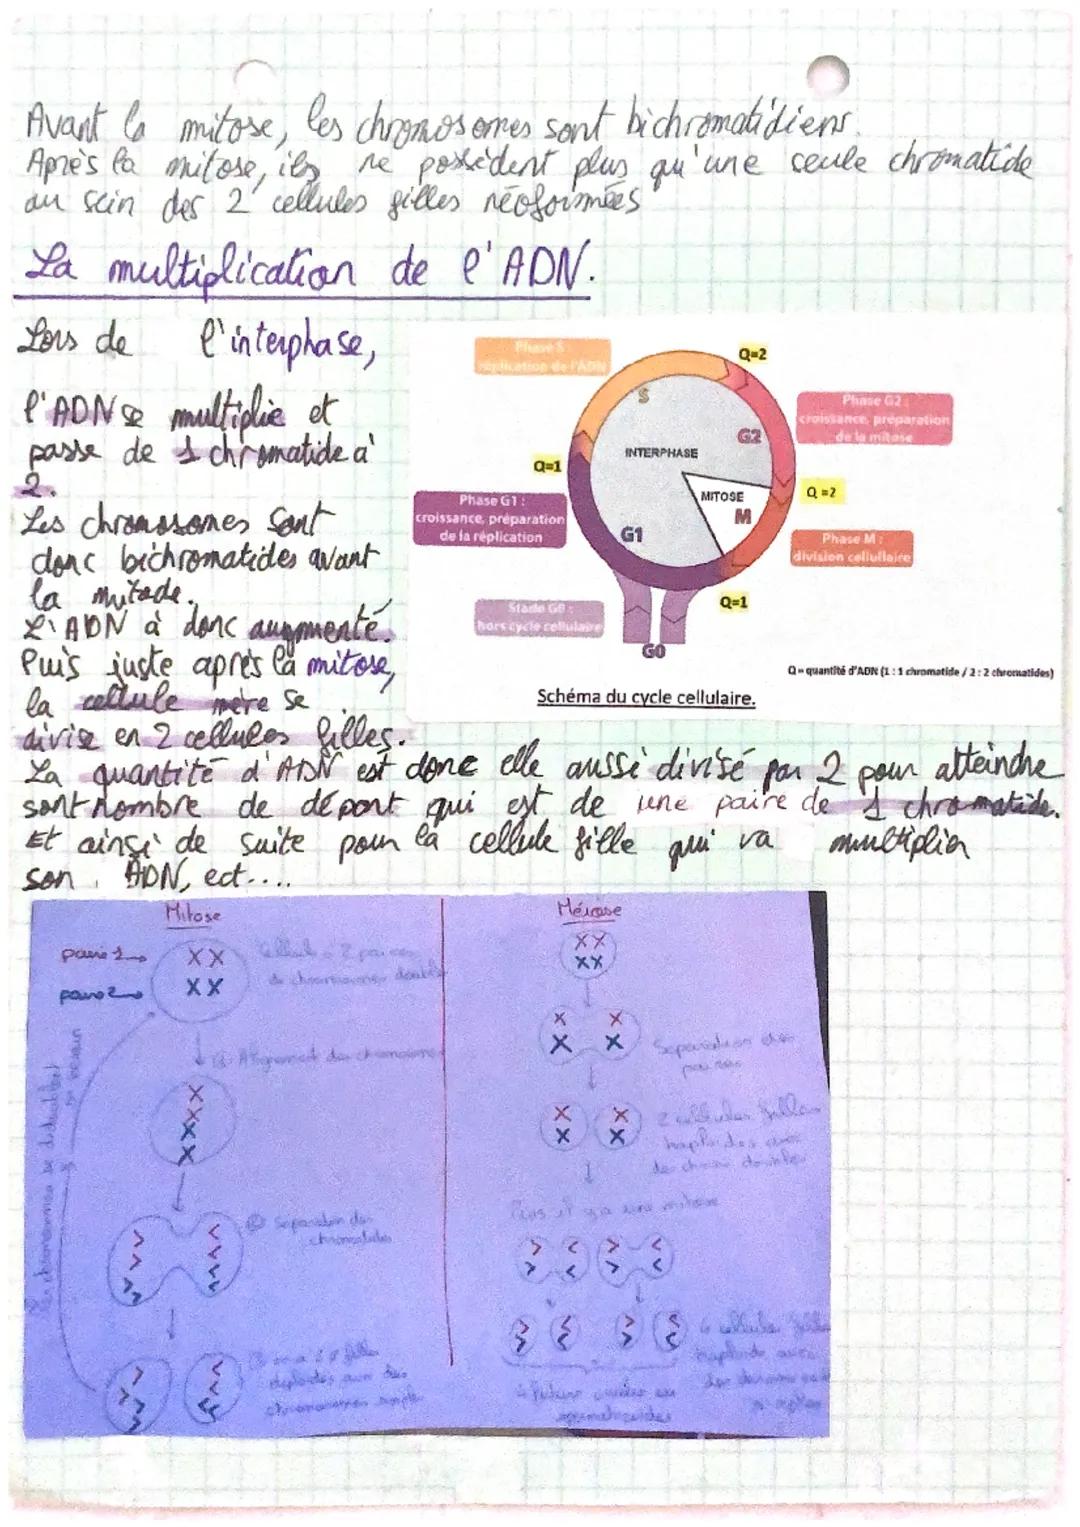 Avant la mitose, les chromosomes sont bichromatidiens.
Après la mitose, ils ne possèdent plus qu'une seule chromatide
au sein des 2 cellules filles néoformées
La multiplication de l'ADN.
Lors de l'interphase,
l'ADN se multiplie et
passe de 1 chromatide à
2.
Les chromosomes sont
donc bichromatides avant
la mitade.
L'ADN à donc augmenté.
Puis juste après la mitose,
la cellule mère se
divise en 2 cellules filles.
La quantité d'ADN est donc elle aussi divisé par 2 pour atteindre
sont nombre de départ qui est de une paire de 1 chromatide.
Et ainsi de suite pour la cellule fille qui va multiplier
son ADN, ect....
Phase S :
réplication de l'ADN
Q=2
S
Phase G2 :
croissance, préparation
de la mitose
G2
INTERPHASE
Q=1
MITOSE
M
Q =2
Phase G1 :
croissance, préparation
de la réplication
G1
Phase M :
division cellullaire
Stade G0 :
hors cycle cellulaire
Q=1
G0
Q = quantité d'ADN (1 : 1 chromatide / 2 : 2 chromatides)
Schéma du cycle cellulaire.
Mitose
paire 1
paire 2
Cellule à 2 paires
de chromosomes doubles
Alignement des chromosomes
② Séparation des
chromatides
Méiose
Séparation des
paires
2 cellules filles
haploides avec
des chromo doubles
Puis il y a une mitose
4 cellules filles
haploide avec